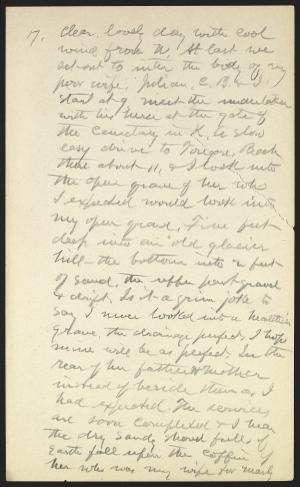 17. Clear, lovely day with cool
wind from N. At last we
set out to inter the body of my
poor wife. Julian, C. B. & I
start at 9, meet the undertaker
with his hearse at the gate of
the Cemetery in K. A slow
easy drive to Tongore. Reach
there about 11, & I look into
the open grave of her who
I expected would look into
my open grave. Five feet
deep into an old glacier
hill – the bottom into 2 feet
of sand, the upper part gravel
& drift. Is it a grim joke to
say I never looked into a healthier
grave, the drainage perfect. I hope
mine will be as perfect. In the
rear of her father & mother
instead of beside them as I
had expected. The services
are soon completed & I hear
the dry sandy shovel fulls of
Earth fall upon the coffin of
her who was my wife for nearly